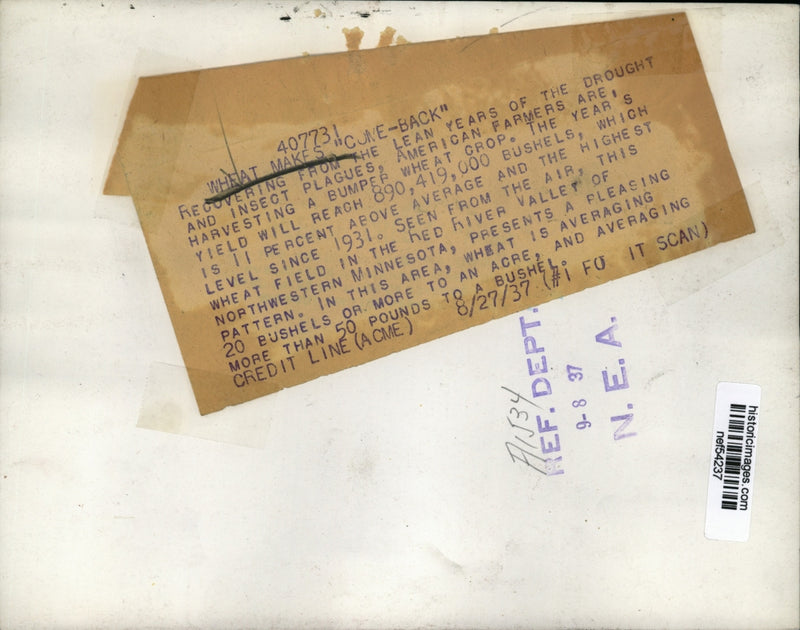 407731
WHEAT MAKES "COME-BACK"
RECOVERING FROM THE LEAN YEARS OF THE DROUGHT
AND INSECT PLAGUES, AMERICAN FARMERS ARE,
HARVESTING A BUMPER WHEAT CROP. THE YEAR,S
YIELD WILL REACH 890,419,000 BUSHELS, WHICH
IS 11 PERCENT ABOVE AVERAGE AND THE HIGHEST
LEVEL SINCE 1931. SEEN FROM THE AIR, THIS
WHEAT FIELD IN THE RED RIVER VALLEY OF
NORTHWESTERN MINNESOTA, PRESENTS A PLEASING
PATTERN. IN THIS AREA, WHEAT IS AVERAGING
20 BUSHELS OR MORE TO AN ACRE, AND AVERAGING
MORE THAN 50 POUNDS TO A BUSHEL.
CREDIT LINE (ACME) 8/27/37 (#1 FO IT SCAN)
A1534
REF. DEPT.
9-8 37
N. E. A.
historicimages.com
nef54237